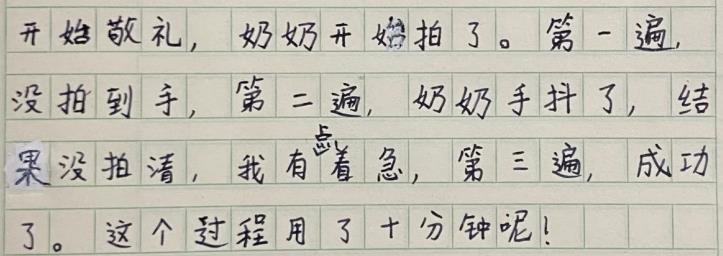 开始敬礼，奶奶开始拍了。第一遍，
没拍到手，第二遍，奶奶手抖了，结
果没拍清，我有点着急，第三遍，成功
了。这个过程用了十分钟呢！